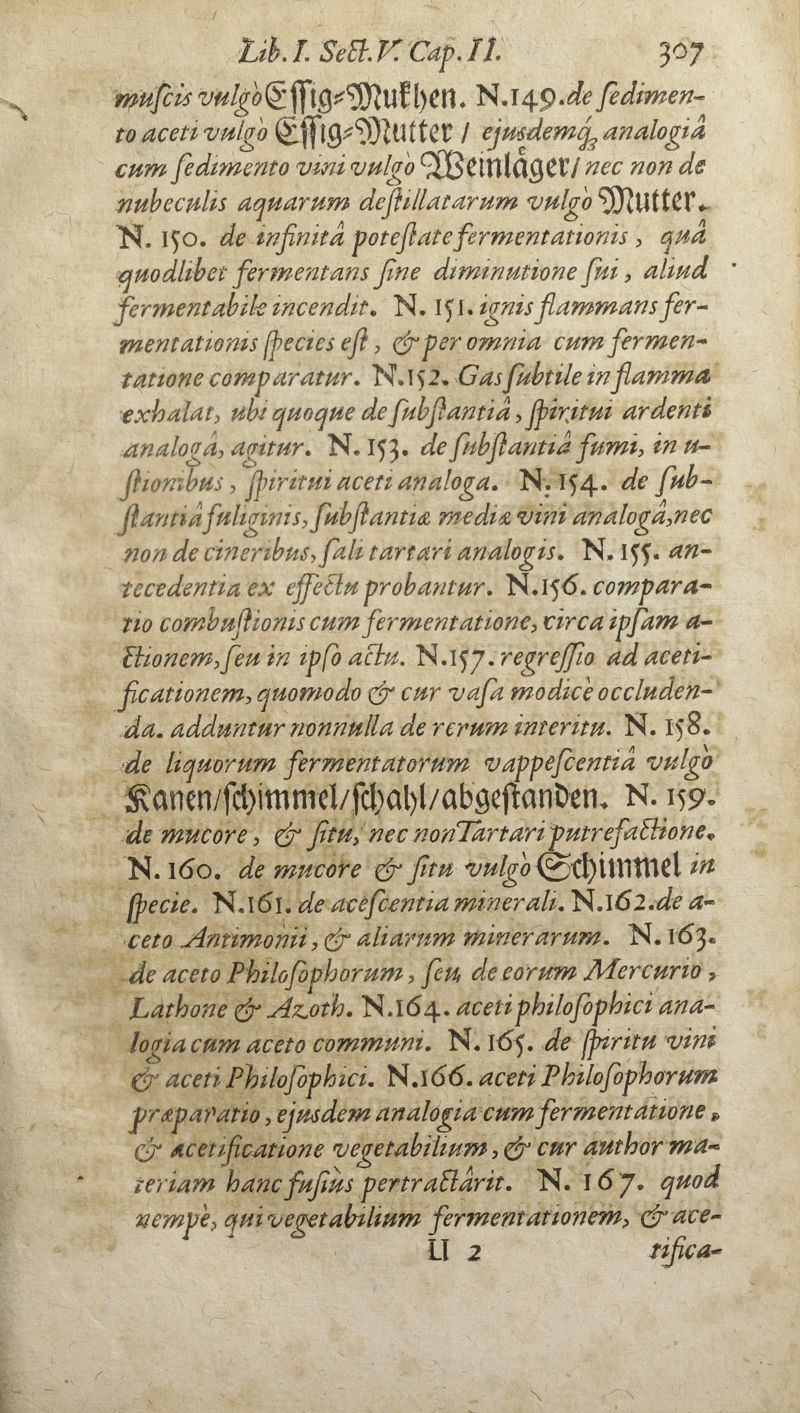 Lib. I. Sect. V. Cap. II. 307
muſcis vulgò Eſſig⸗Muͤkhen. N. 149. de ſedimen-
to aceti vulgò Eſſig⸗Mutter / ejusdemq; analogiâ
cum ſedimento vini vulgò Weinlåger / nec non de
nubeculis aquarum deſtillatarum vulgò Mutter.
N. 150. de infinitâ poteſtate fermentationis, quâ
quodlibet fermentans ſine diminutione ſui, aliud
fermentabile incendit. N. 151. ignis flammans fer-
mentationis ſpecies eſt, & per omnia cum fermen-
tatione comparatur. N. 152. Gas ſubtile in flamma
exhalat, ubi quoque de ſubſtantiâ, ſpiritui ardenti
analogâ, agitur. N. 153. de ſubſtantiâ fumi, in u-
ſtionibus, ſpiritui aceti analoga. N. 154. de ſub-
ſtantiâ fuliginis, ſubſtantiæ mediæ vini analogâ, nec
non de cineribus, ſali tartari analogis. N. 155. an-
tecedentia ex effectu probantur. N. 156. compara-
tio combuſtionis cum fermentatione, circa ipſam a-
ctionem, ſeu in ipſo actu. N. 157. regreſſio ad aceti-
ficationem, quomodo & cur vaſa modicè occluden-
da. adduntur nonnulla de rerum interitu. N. 158.
de liquorum fermentatorum vappeſcentiâ vulgò
Kanen / ſchimmel / ſchahl / abgeſtanden. N. 159.
de mucore, & ſitu, nec non Tartari putrefactione.
N. 160. de mucore & ſitu vulgò Schimmel in
ſpecie. N. 161. de aceſcentia minerali. N. 162. de a-
ceto Antimonii, & aliarum minerarum. N. 163.
de aceto Philoſophorum, ſeu, de eorum Mercurio,
Lathone & Azoth. N. 164. aceti philoſophici ana-
logia cum aceto communi. N. 165. de ſpiritu vini
& aceti Philoſophici. N. 166. aceti Philoſophorum
præparatio, ejusdem analogia cum fermentatione,
& acetificatione vegetabilium, & cur author ma-
teriam hanc fuſiùs pertractârit. N. 167. quod
nempè, qui vegetabilium fermentationem, & ace-
Ll 2 tifica-